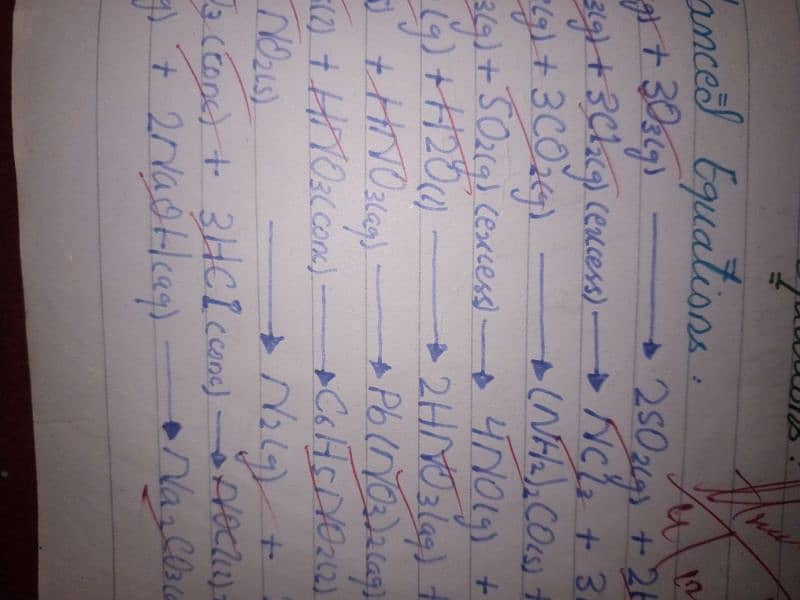 Balanced Equations:
g) + 3O3(g) → 2SO2(g) + 2H
3(g) + 3Cl2(g) (excess) → NCl3 + 3
3(g) + 3CO2(g) → (NH2)2CO(s) +
3(g) + 5O2(g) (excess) → 4NO(g) +
(g) + H2O(l) → 2HNO3(aq) +
+ HNO3(aq) → Pb(NO3)2(aq)
(l) + HNO3(conc) → C6H5NO2(l)
NO2(s) → N2(g) +
3(conc) + 3HCl(conc) → NOCl(l) +
g) + 2NaOH(aq) → Na2CO3(a